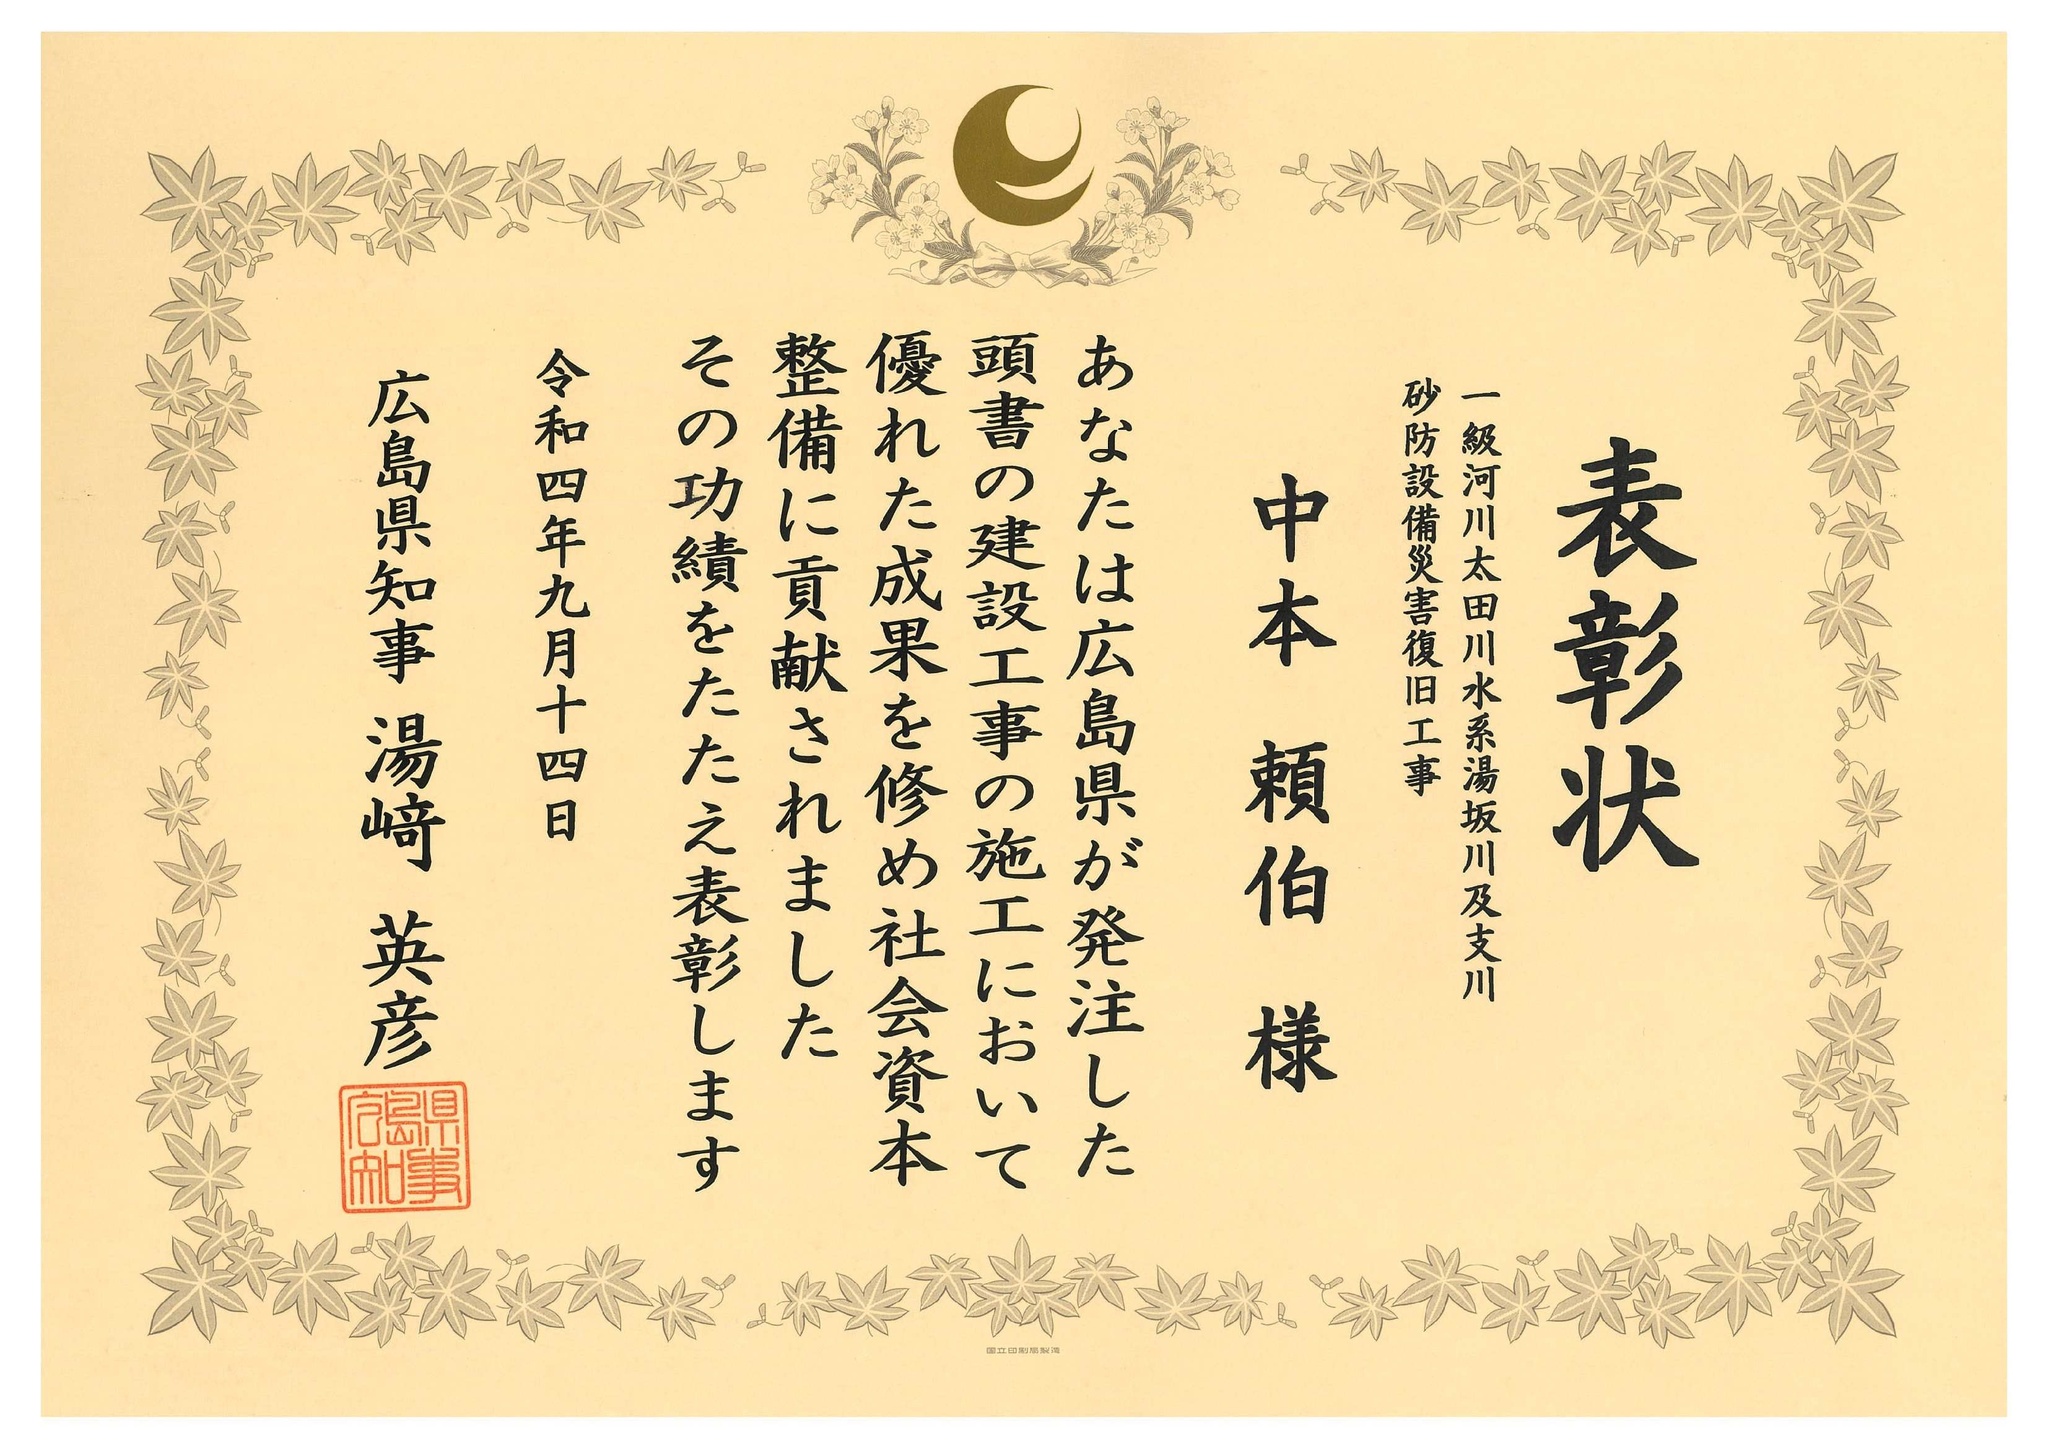 表彰状
一級河川太田川水系湯坂川及支川
砂防設備災害復旧工事
中本 頼伯 様
あなたは広島県が発注した
頭書の建設工事の施工において
優れた成果を修め社会資本
整備に貢献されました
その功績をたたえ表彰します
令和四年九月十四日
広島県知事 湯﨑 英彦
広島県知事
国立印刷局製造